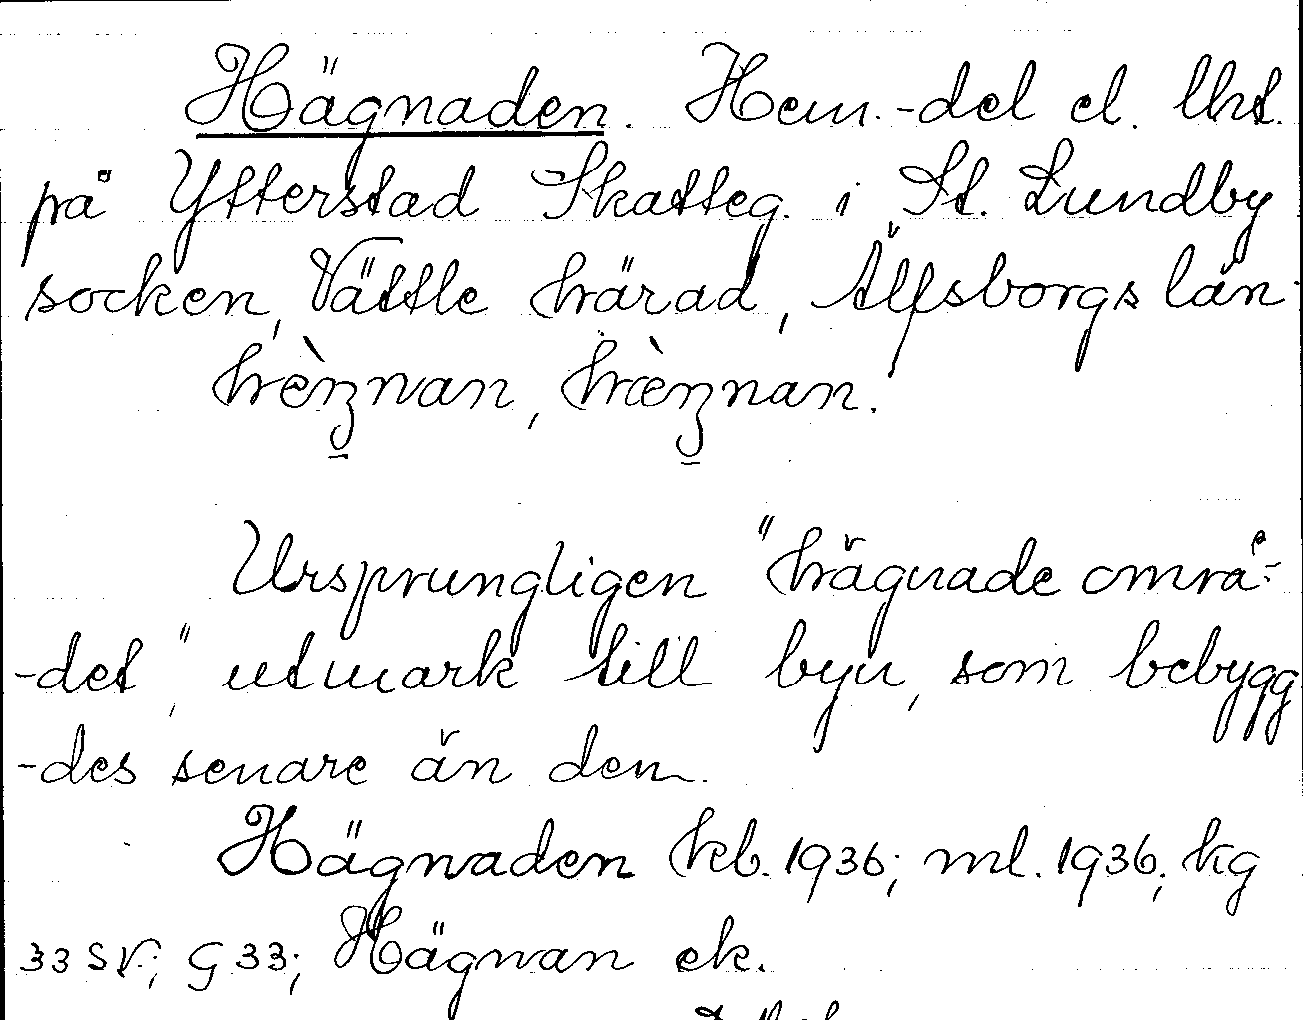 Hägnaden. Hem.-del el. lht.
på Ytterstad Skatteg. i St. Lundby
socken, Vättle härad, Älfsborgs län.
hèŋnan, hæ̀ŋnan.
Ursprungligen "hägnade områ-
-det", utmark till byn, som bebygg
-des senare än den.
Hägnaden kb. 1936; ml. 1936; kg
33 SV; G 33; Hägnan ek.